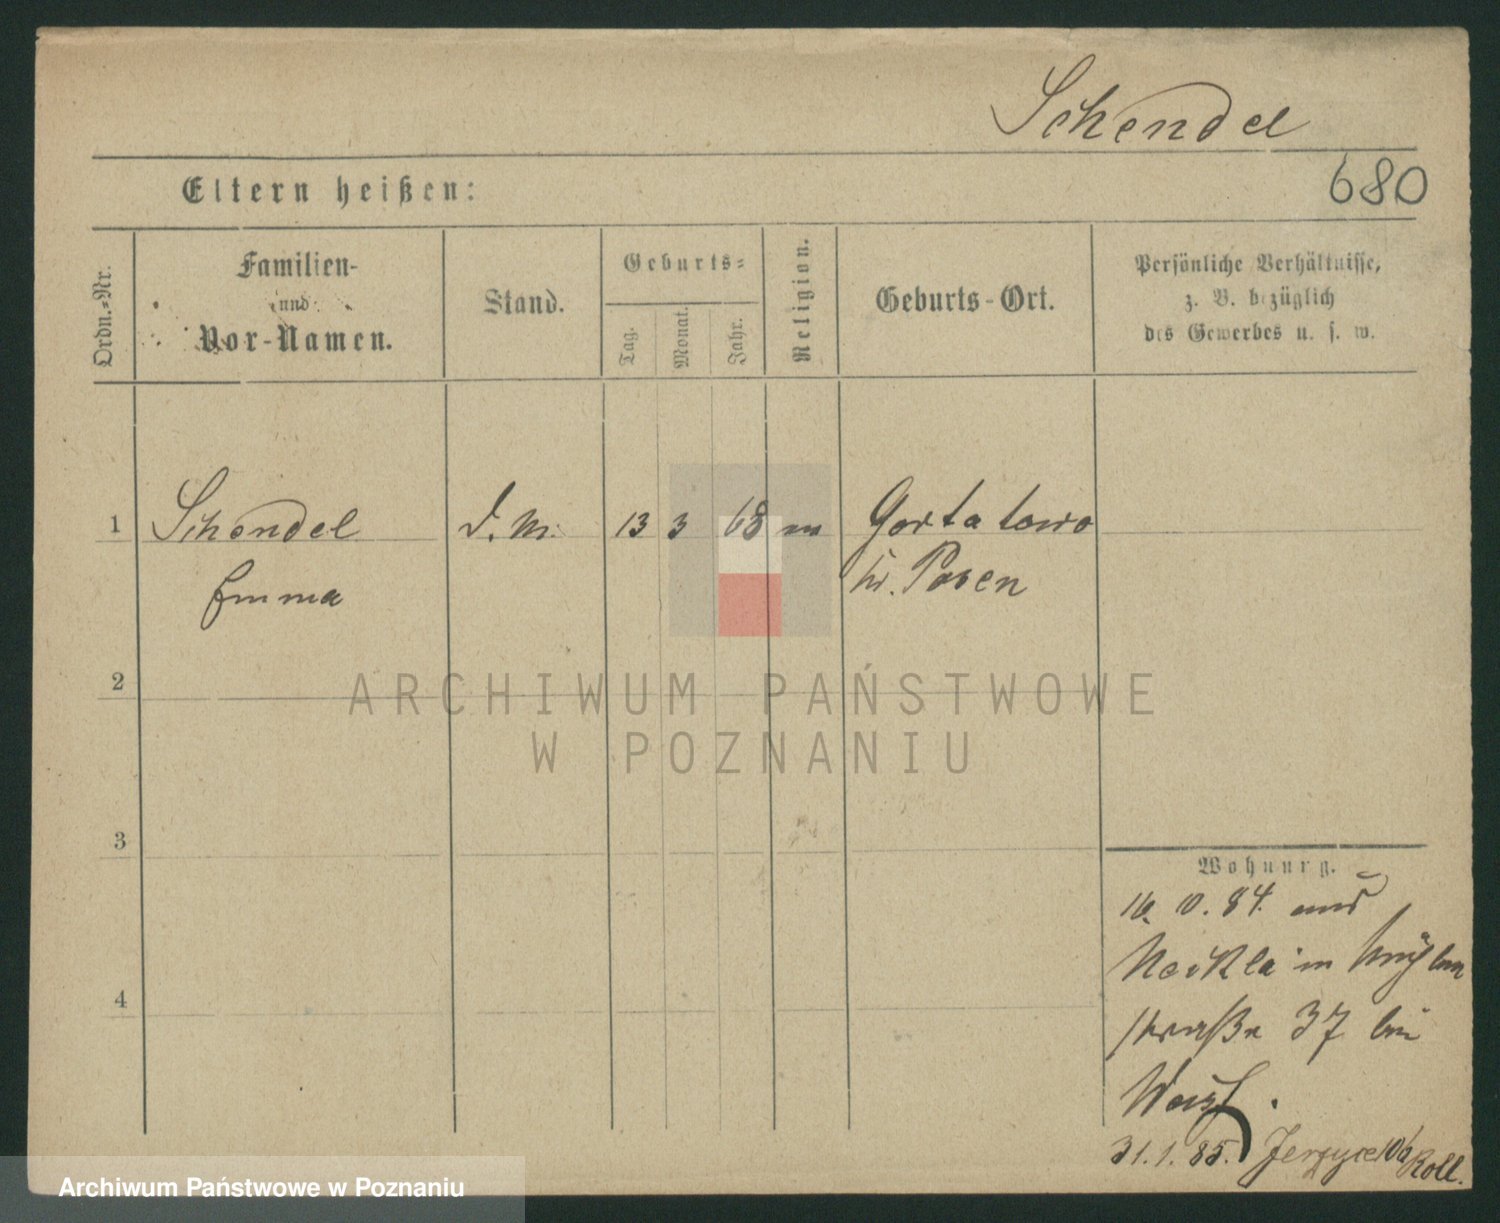 Schendel
680
Eltern heißen:
Ordn.-Nr.
Familien-
und
Vor-Namen.
Stand.
Geburts-
Tag.
Monat.
Jahr.
Religion.
Geburts-Ort.
Persönliche Verhältnisse,
z. B. bezüglich
des Gewerbes u. s. w.
1 Schendel D. M. 13 3 68 Gortatowo
Emma Kr. Posen
2
ARCHIWUM PAŃSTWOWE
W POZNANIU
3
Wohnung.
16. 10. 84. aus
Neckla in Mühlen
straße 37 bei
4
31. 1. 85. Jerzyce Roll.
Archiwum Państwowe w Poznaniu